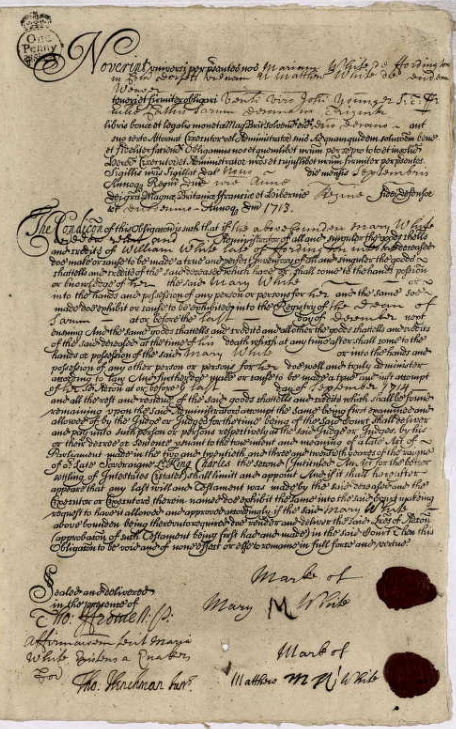 One Penny
Noverint universi per presentes nos Mariam White de Fordington
in Com Dorset viduam et Mattheu White de eadem
Weaver
teneri et firmiter obligari Venli viro John Younger
Eccliae Cathis Sarum Decano in Triginta
libris bonae et legalis monetae Mag Brit solvend eidem Decano aut
suo certo Attornat Executoribus Administrator vel Assignat
et fideliter faciend Obligamus nos et quemlibet
Heredes Executores et Administrator
Sigillis nris Sigillat dat Nono die mensis Septembris
Annoq Regni Dnae nrae Annae
Dei gra Magnae Britanniae Franciae et Hiberniae Reginae Fidei Defensor
et Annoq Dni 1713.
The Condicon of this Obligation is such that if the above bounden Mary White
Administrator of all and singular the goods chattells
and credits of William White of Fordington deceased
doe make or cause to be made a true and perfect Inventory of all and singular the goods
chattells and credits of the said deceased which have or shall come to the hands possion
or knowledge of her the said Mary White or
into the hands and possession of any person or persons for her and the same soe
made doe exhibit or cause to be exhibited into the Registry of the Dean of
Sarum at or before the last day of December next
ensuing And the same goods chattells and credits and all other the goods chattells and credits
of the said deceased at the time of his death which at any time after shall come to the
hands or possession of the said Mary White or into the hands and
possession of any other person or persons for her doe well and truly administer
according to law And further doe make or cause to be made a true and just accompt
of her at or before the last day of September 1714
and all the rest and residue of the said goods chattells and credits which shall be found
remaining upon the said Administrators accompt the same being first examined and
allowed of by the Judge or Judges for the time being of the said Court shall deliver
and pay unto such person or persons respectively as the said Judge or Judges by his
or their decree or sentence pursuant to the true intent and meaning of a late Act of
Parliament made in the two and twentieth and three and twentieth yeares of the raigne
of our late Soveraigne Ld King Charles the second (Intituled An Act for the better
setling of Intestates Estates) shall limitt and appoint And if it shall hereafter
appeare that any last will and Testament was made by the said deceased and the
Executor or Executors therein named doe exhibit the same into the said Court making
request to have it allowed and approved accordingly if the said Mary White
above bounden being thereunto required doe render and deliver the said Lres of Adcon
(approbacon of such Testament being first had and made) in the said Court Then this
Obligation to be void and of none effect or else to remaine in full force and vertue
Sealed and delivered
in the presence of
Mark of
Mary M White
Tho:
White
Quaker
Mark of
Matthew M W White
Tho: Hinchman